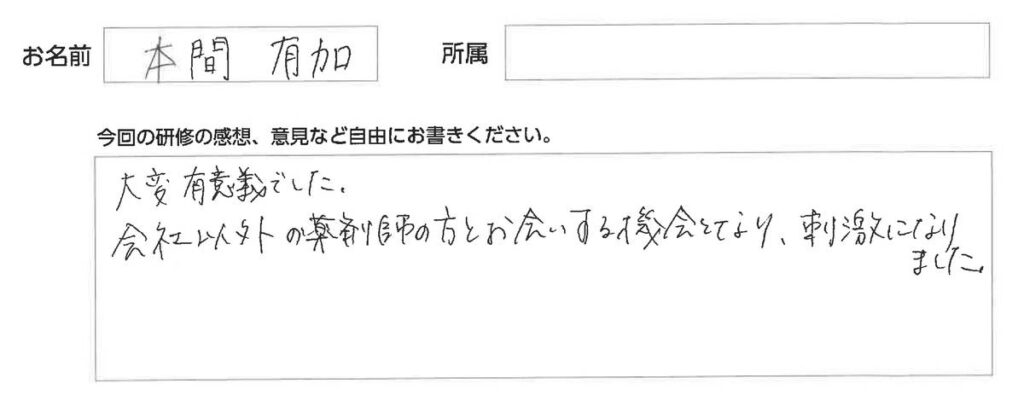 お名前 本間 有加 所属
今回の研修の感想、意見など自由にお書きください。
大変有意義でした。
会社以外の薬剤師の方とお会いする機会となり、刺激になり
ました。